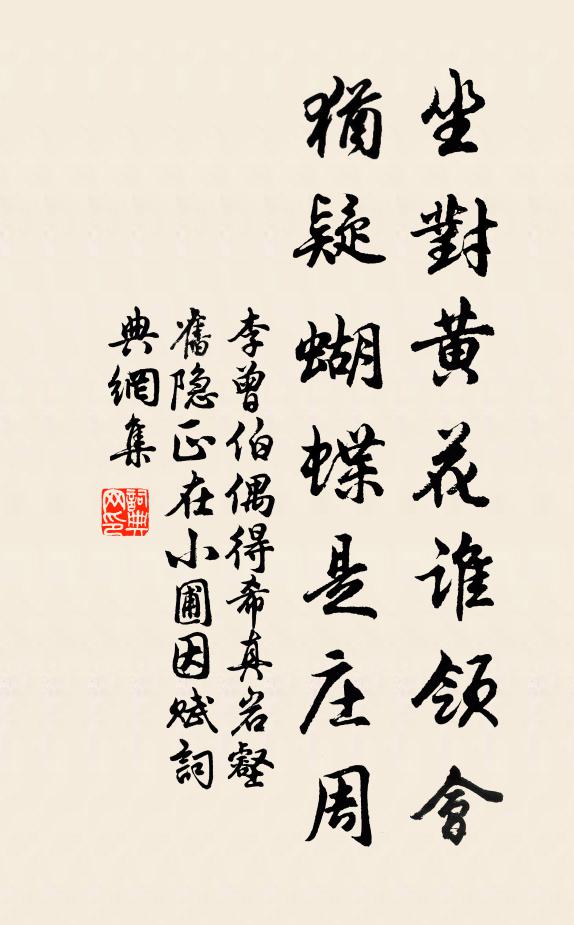 坐對黄花誰領會
猶疑蝴蝶是庄周
李曾伯偶得希真岩壑
舊隐正在小圃因赋詞
典網集
詞典网印